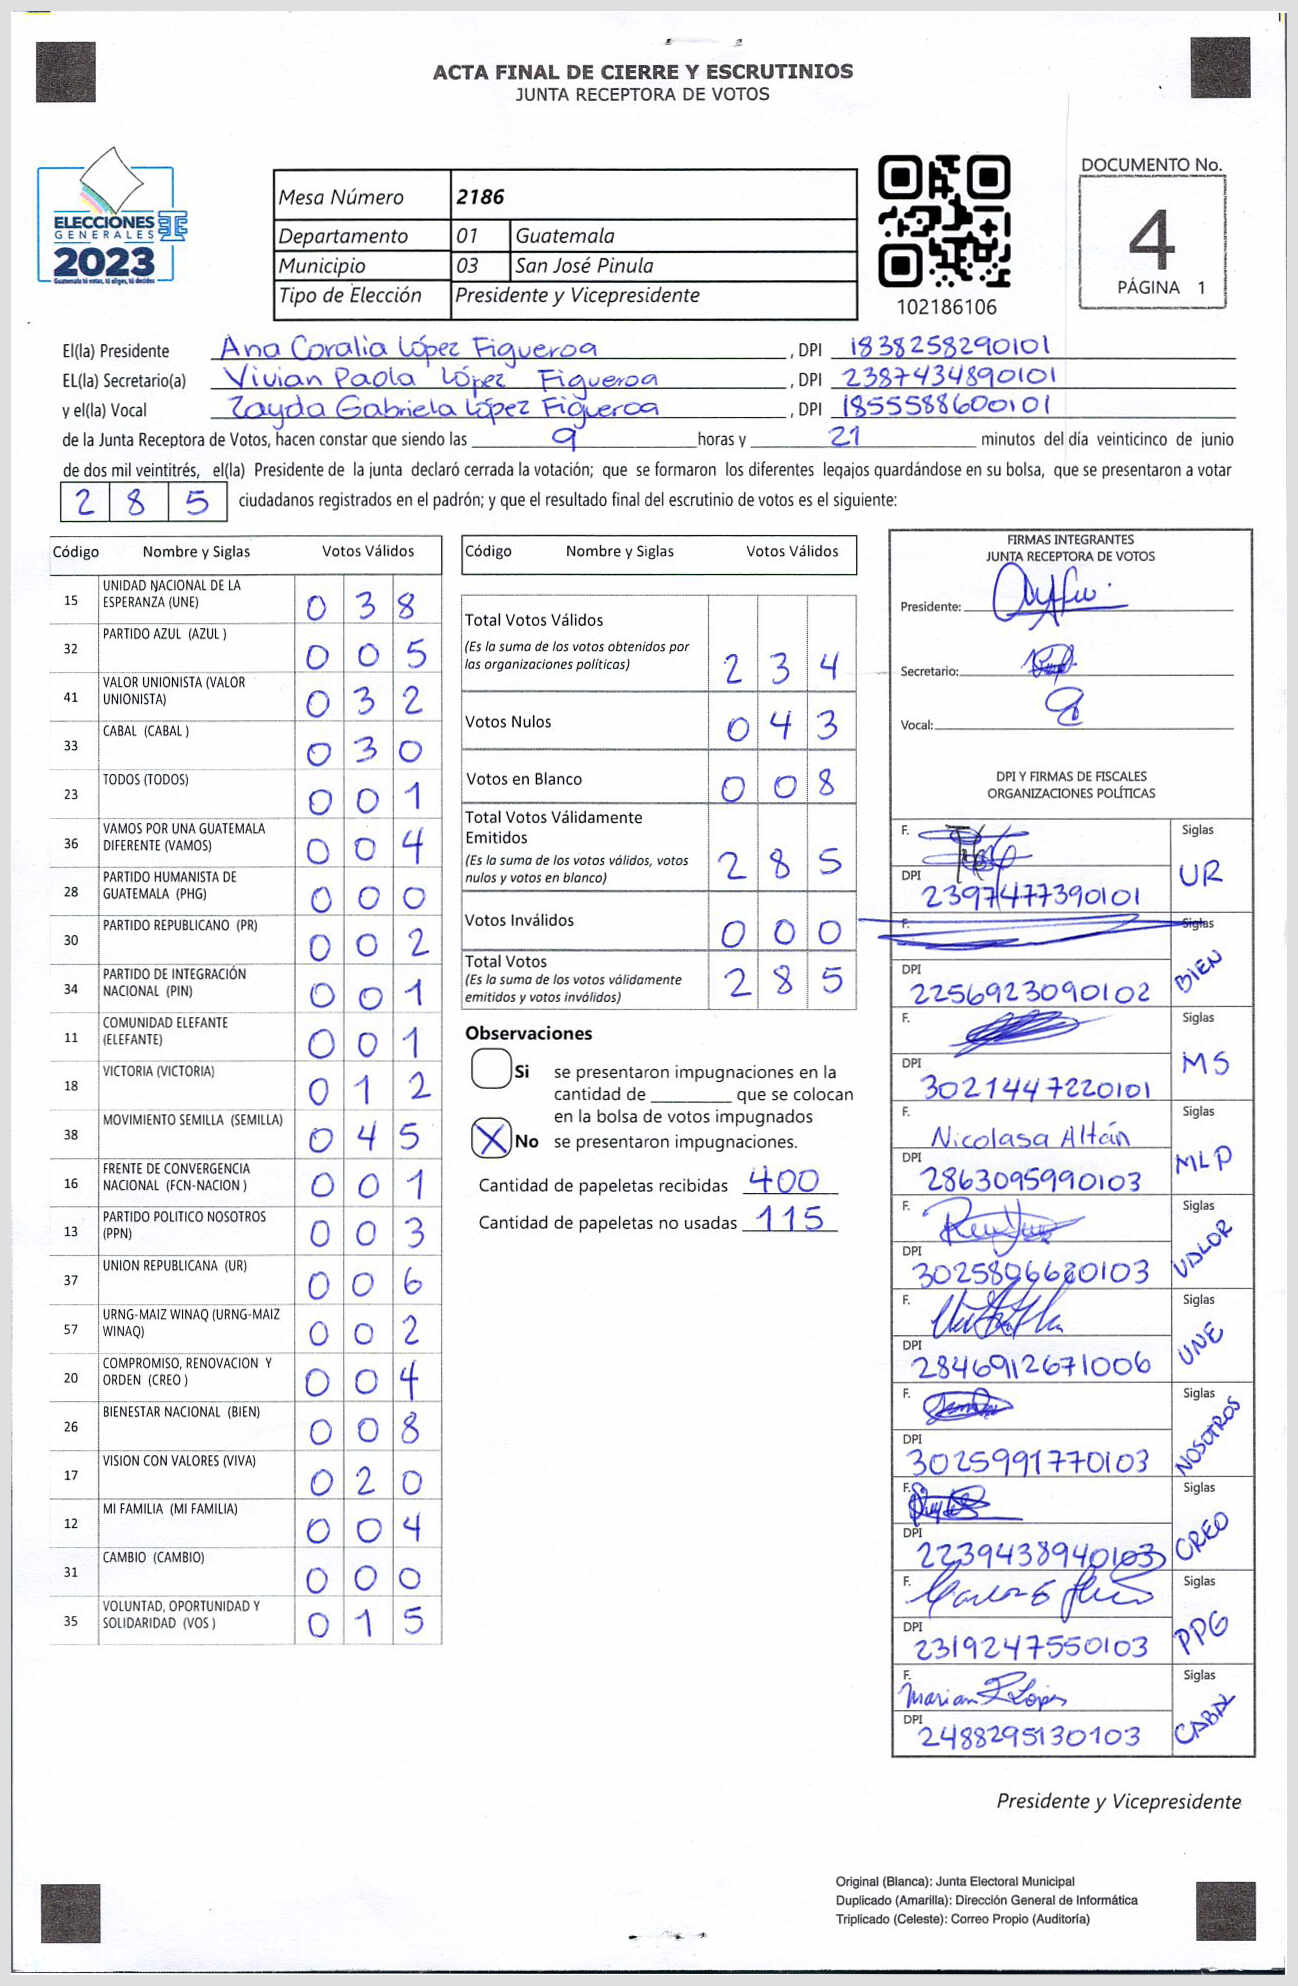 ACTA FINAL DE CIERRE Y ESCRUTINIOS
JUNTA RECEPTORA DE VOTOS
ELECCIONES
GENERALES
2023
Guatemala tú votas, tú eliges, tú decides
Mesa Número 2186
Departamento 01 Guatemala
Municipio 03 San José Pinula
Tipo de Elección Presidente y Vicepresidente
102186106
DOCUMENTO No.
4
PÁGINA 1
El(la) Presidente Ana Coralia López Figueroa , DPI 1838258290101
EL(la) Secretario(a) Vivian Paola López Figueroa , DPI 2387434890101
y el(la) Vocal Zayda Gabriela López Figueroa , DPI 1855588600101
de la Junta Receptora de Votos, hacen constar que siendo las 9 horas y 21 minutos del día veinticinco de junio
de dos mil veintitrés, el(la) Presidente de la junta declaró cerrada la votación; que se formaron los diferentes legajos guardándose en su bolsa, que se presentaron a votar
285 ciudadanos registrados en el padrón; y que el resultado final del escrutinio de votos es el siguiente:
Código Nombre y Siglas Votos Válidos
15 UNIDAD NACIONAL DE LA ESPERANZA (UNE) 038
32 PARTIDO AZUL (AZUL ) 005
41 VALOR UNIONISTA (VALOR UNIONISTA) 032
33 CABAL (CABAL ) 030
23 TODOS (TODOS) 001
36 VAMOS POR UNA GUATEMALA DIFERENTE (VAMOS) 004
28 PARTIDO HUMANISTA DE GUATEMALA (PHG) 000
30 PARTIDO REPUBLICANO (PR) 002
34 PARTIDO DE INTEGRACIÓN NACIONAL (PIN) 001
11 COMUNIDAD ELEFANTE (ELEFANTE) 001
18 VICTORIA (VICTORIA) 012
38 MOVIMIENTO SEMILLA (SEMILLA) 045
16 FRENTE DE CONVERGENCIA NACIONAL (FCN-NACION ) 001
13 PARTIDO POLITICO NOSOTROS (PPN) 003
37 UNION REPUBLICANA (UR) 006
57 URNG-MAIZ WINAQ (URNG-MAIZ WINAQ) 002
20 COMPROMISO, RENOVACION Y ORDEN (CREO ) 004
26 BIENESTAR NACIONAL (BIEN) 008
17 VISION CON VALORES (VIVA) 020
12 MI FAMILIA (MI FAMILIA) 004
31 CAMBIO (CAMBIO) 000
35 VOLUNTAD, OPORTUNIDAD Y SOLIDARIDAD (VOS ) 015
Código Nombre y Siglas Votos Válidos
Total Votos Válidos
(Es la suma de los votos obtenidos por
las organizaciones políticas) 234
Votos Nulos 043
Votos en Blanco 008
Total Votos Válidamente
Emitidos
(Es la suma de los votos válidos, votos
nulos y votos en blanco) 285
Votos Inválidos 000
Total Votos
(Es la suma de los votos válidamente
emitidos y votos inválidos) 285
Observaciones
Si se presentaron impugnaciones en la
cantidad de ________ que se colocan
en la bolsa de votos impugnados
X No se presentaron impugnaciones.
Cantidad de papeletas recibidas 400
Cantidad de papeletas no usadas 115
FIRMAS INTEGRANTES
JUNTA RECEPTORA DE VOTOS
Presidente:
Secretario:
Vocal:
DPI Y FIRMAS DE FISCALES
ORGANIZACIONES POLÍTICAS
F. Siglas
DPI 2397477390101 UR
F. Siglas
DPI 2256923090102 BIEN
F. Siglas
DPI 3021447220101 MS
F. Nicolasa Altán Siglas
DPI 2863095990103 MLP
F. Siglas
DPI 3025896620103 VALOR
F. Siglas
DPI 2846912671006 UNE
F. Siglas
DPI 3025991770103 NOSOTROS
F. Siglas
DPI 2239438940103 CREO
F. Siglas
DPI 2319247550103 PPG
F. Siglas
DPI 2488295130103 CABAL
Presidente y Vicepresidente
Original (Blanca): Junta Electoral Municipal
Duplicado (Amarilla): Dirección General de Informática
Triplicado (Celeste): Correo Propio (Auditoría)